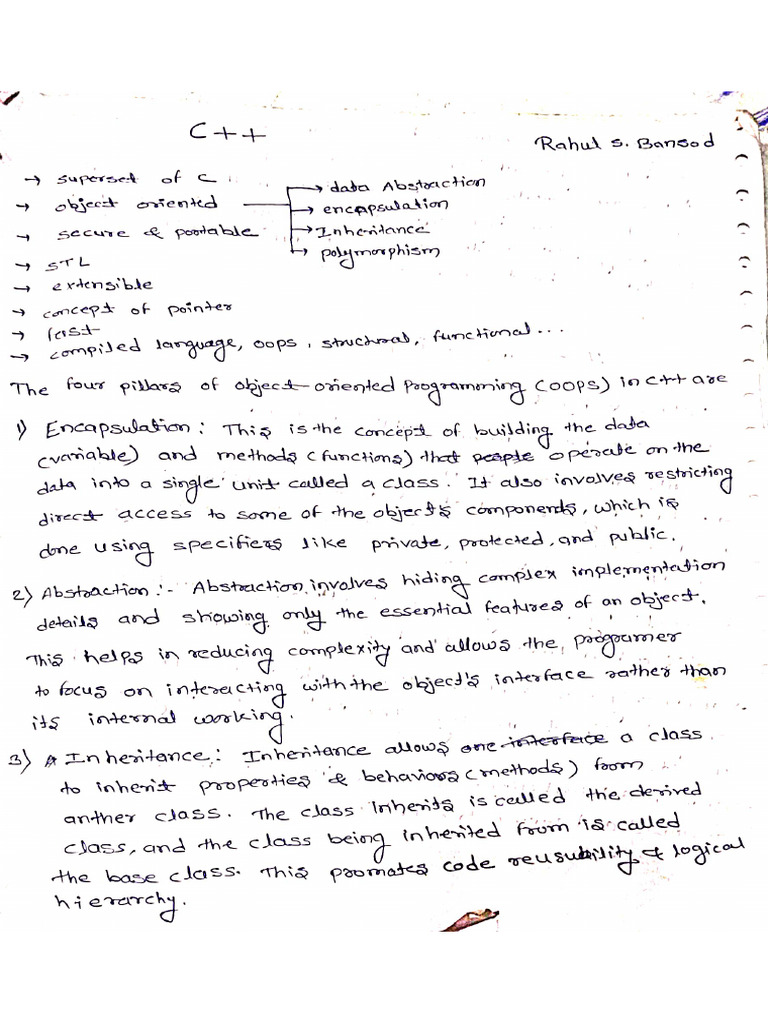 C++
Rahul S. Bansod
→ superset of C
→ object oriented
→ data Abstraction
→ encapsulation
→ Inheritance
→ polymorphism
→ secure & portable
→ STL
→ extensible
→ concept of pointer
→ fast
→ compiled language, oops, structural, functional...
The four pillars of object-oriented programming (OOPS) in C++ are
1) Encapsulation: This is the concept of building the data
(variable) and methods (functions) that people operate on the
data into a single unit called a class. It also involves restricting
direct access to some of the object's components, which is
done using specifiers like private, protected, and public.
2) Abstraction:- Abstraction involves hiding complex implementation
details and showing only the essential features of an object.
This helps in reducing complexity and allows the programer
to focus on interacting with the object's interface rather than
its internal working.
3) Inheritance: Inheritance allows one interface a class
to inherit properties & behaviors (methods) from
anther class. The class inherits is called the derived
class, and the class being inherited from is called
the base class. This promates code reusubility & logical
hierarchy.